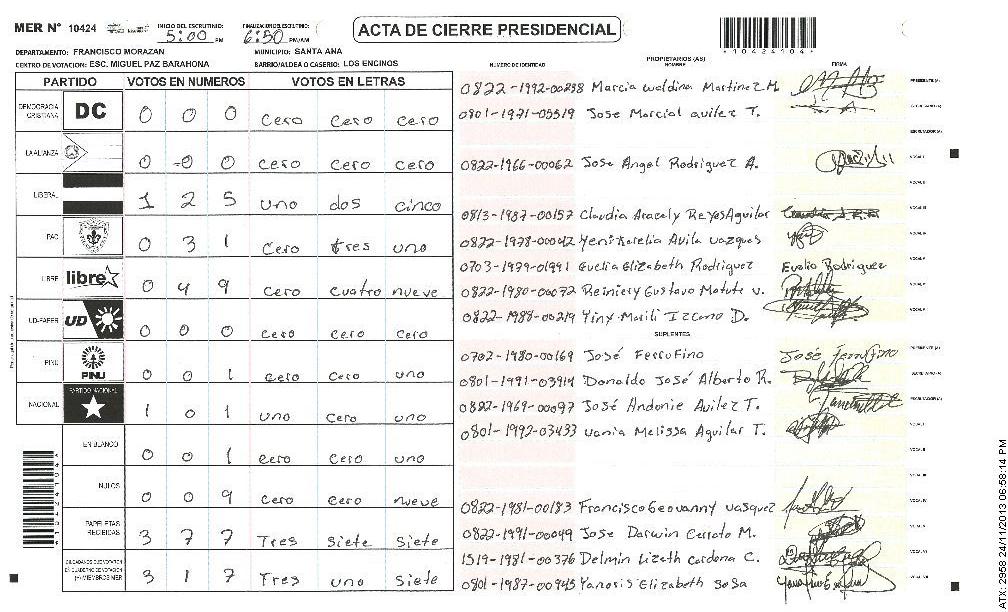 MER N° 10424 INICIO DEL ESCRUTINIO: 5:00 PM FINALIZACION DEL ESCRUTINIO: 6:50 PM/AM ACTA DE CIERRE PRESIDENCIAL
*10424104*
DEPARTAMENTO: FRANCISCO MORAZAN MUNICIPIO: SANTA ANA
CENTRO DE VOTACION: ESC. MIGUEL PAZ BARAHONA BARRIO/ALDEA O CASERIO: LOS ENCINOS
PARTIDO VOTOS EN NUMEROS VOTOS EN LETRAS
DEMOCRACIA CRISTIANA DC 0 0 0 cero cero cero
LA ALIANZA 0 0 0 cero cero cero
LIBERAL 1 2 5 uno dos cinco
PAC 0 3 1 cero tres uno
LIBRE libre 0 4 9 cero cuatro nueve
UD-FAPER UD 0 0 0 cero cero cero
PINU PINU 0 0 1 cero cero uno
NACIONAL PARTIDO NACIONAL 1 0 1 uno cero uno
EN BLANCO 0 0 1 cero cero uno
NULOS 0 0 9 cero cero nueve
PAPELETAS RECIBIDAS 3 7 7 Tres siete siete
CIUDADANOS QUE VOTARON EN CUADERNO DE VOTACION (+) MIEMBROS MER 3 1 7 Tres uno siete
PROPIETARIOS (AS)
NUMERO DE IDENTIDAD NOMBRE FIRMA
0822-1992-00298 Marcia Waldina Martinez M. PRESIDENTE (A)
0801-1971-05519 Jose Marcial avilez T. SECRETARIO (A)
ESCRUTADOR (A)
0822-1966-00062 Jose Angel Rodriguez A. VOCAL I
VOCAL II
0813-1987-00157 Claudia Aracely Reyes Aguilar VOCAL III
0822-1978-00042 Yeni Karelia Avila vazques VOCAL IV
0703-1979-01991 Evelia Elizabeth Rodriguez Evelia Rodriguez VOCAL V
0822-1980-00072 Reiniery Gustavo Matute v.
0822-1988-00219 Yiny Marili Izcano D.
SUPLENTES
0702-1980-00169 José Ferrufino José Ferrufino PRESIDENTE (A)
0801-1991-03914 Donaldo José Alberto R. SECRETARIO (A)
0822-1969-00097 José Andonie Avilez T. ESCRUTADOR (A)
0801-1992-03433 vania Melissa Aguilar T. VOCAL I
VOCAL II
VOCAL III
0822-1981-00183 Francisco Geovanny vasquez VOCAL IV
0822-1991-00049 Jose Darwin Cerrato M. VOCAL V
1519-1981-00376 Delmin Lizeth Cardona C.
0801-1987-00945 Yanosis Elizabeth Sosa
ATX: 2958 24/11/2013 06:58:14 PM